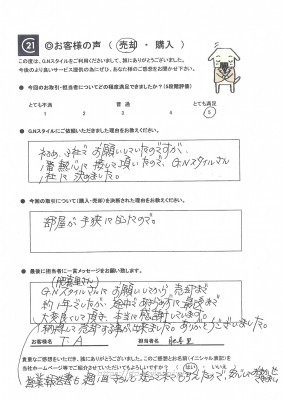 21 ◎お客様の声 ( 売却 ・ 購入 )
この度は、G.Nスタイルをご利用くださいまして、誠にありがとうございました。
今後のより良いサービス提供の為にぜひ、あなたのご感想をお聞かせ下さい。
● 今回のお取引・担当者についてどの程度満足できましたか？(5段階評価)
とても不満 普通 とても満足
1 2 3 4 5
G.Nスタイルにご依頼いただきました理由をお教えください。
初め、3社でお願いしていたのですが、
1番熱心に接して頂いたので、G.Nスタイルさん
1社に決めました。
● 今回の取引について(購入・売却)を決断された理由をお教えください。
部屋が手狭になったので。
● 最後に担当者に一言メッセージをお願い致します。
G.Nスタイルさんにお願いしてから売却まで
約1年でしたが、途中であきらめずに最後まで
大変良くして頂き、本当に感謝しています。
納得して売却する事が出来ました。ありがとうございました。
お客様名 T.A 担当者名
貴重なご感想をいただき、誠にありがとうございました。このご感想とお名前(イニシャル表記)を
当社ホームページ等でご紹介させていただいてもよろしいですか？ ( はい いいえ
営業報告書も週1回きちんと送って来てもらえたので、